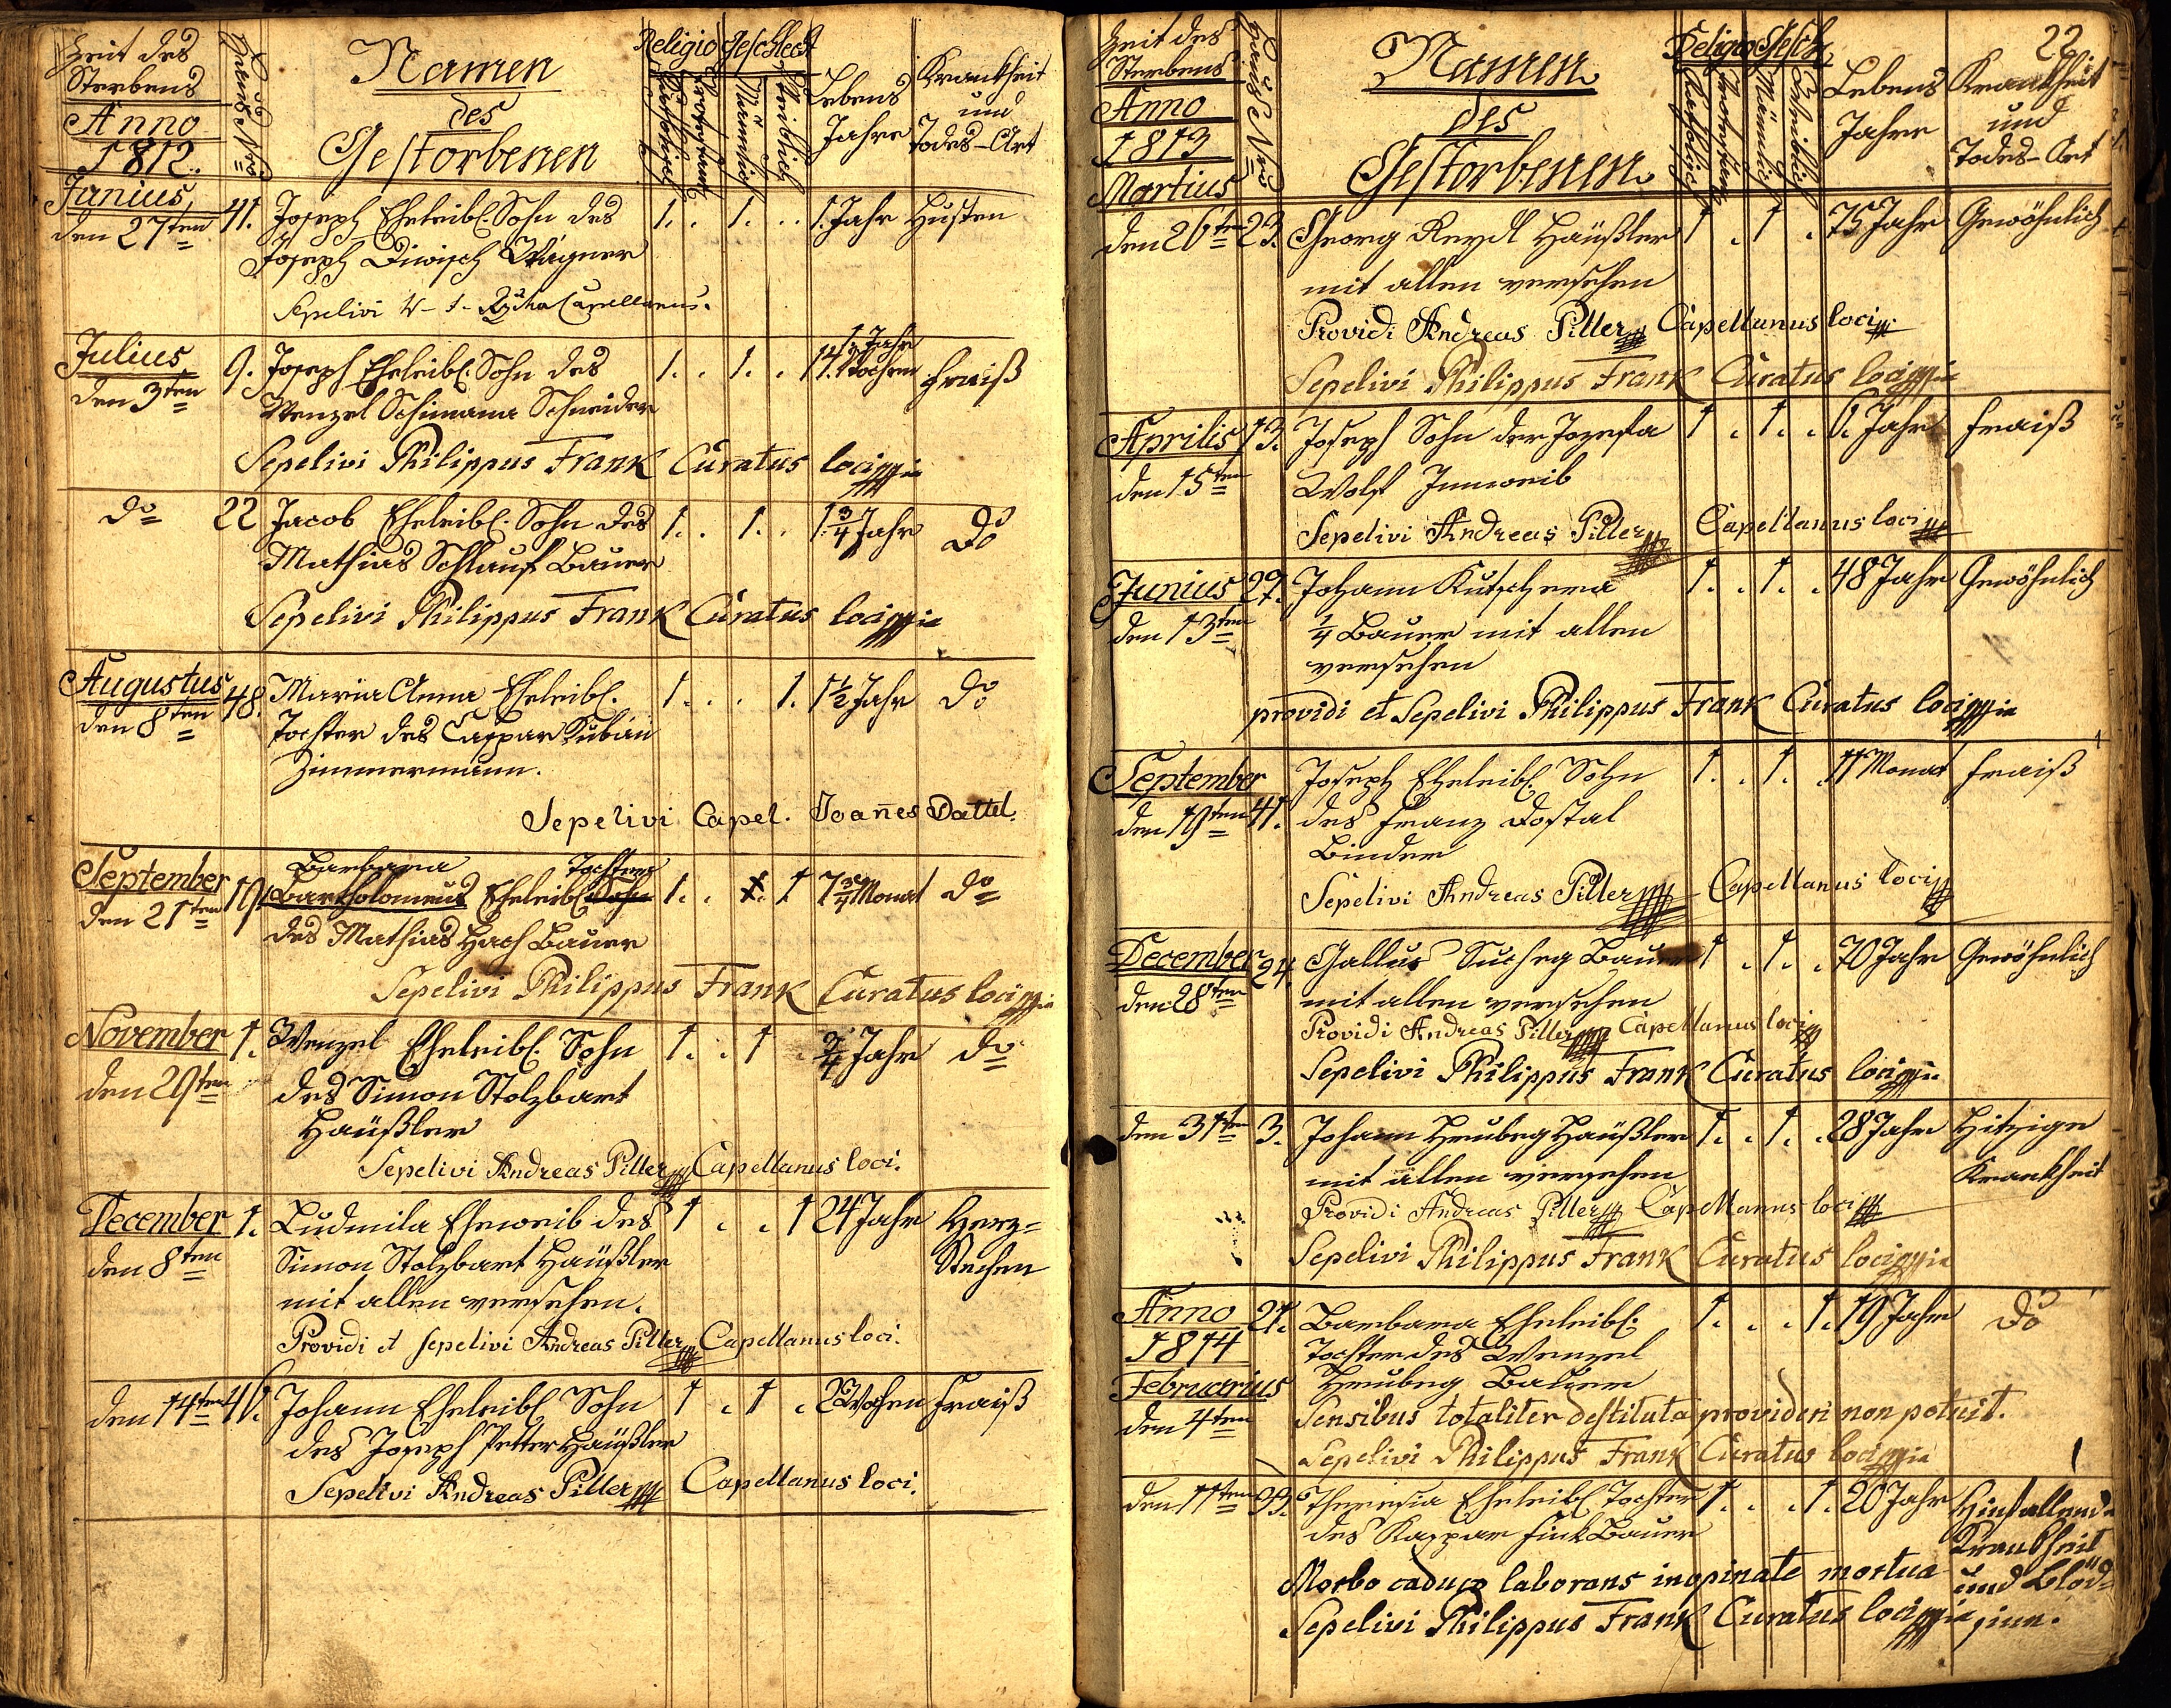 Zeit des
Sterbens
Anno
1812.
Haus Nro
Namen
des
Gestorbenen
Religio
Katholisch
Protestant
Geschlecht
Männlich
Weiblich
Lebens
Jahre
Krankheit
und
Todes-Art
Junius
den 27ten 41. Joseph Eheleibl. Sohn des 1. . 1. . 1. Jahr Husten
Joseph Diwisch Wagner
Sepelivi Capellanus.
Julius
den 3ten 9. Joseph Eheleibl. Sohn des 1. . 1. . 1 Jahr 14. Wochen Fraiß
Wenzel Schimana Schneider
Sepelivi Philippus Frank Curatus loci
do 22 Jacob Eheleibl. Sohn des 1. . 1. . 1 3/4 Jahr do
Mathias Schlauf Bauer
Sepelivi Philippus Frank Curatus loci
Augustus
den 8ten 48. Maria Anna Eheleibl. 1. . . 1. 1 1/2 Jahr do
Tochter des Caspar Kuban
Zimmermann.
Sepelivi Capel. Joañes Dattel.
September
den 21ten 19. Barbara Tochter
Bartholomeus Eheleibl. Sohn 1. . 1. 1 7 3/4 Monat do
des Mathias Hach Bauer
Sepelivi Philippus Frank Curatus loci
November
den 29ten 1. Wenzel Eheleibl. Sohn 1. . 1 . 3/4 Jahr do
des Simon Stolzbart
Häußler
Sepelivi Andreas Piller Capellanus loci.
December
den 8ten 1. Ludmila Eheweib des 1 . . 1 24 Jahr Herz=
Simon Stolzbart Häußler Stechen
mit allen versehen.
Providi et sepelivi Andreas Piller Capellanus loci.
den 14ten 46. Johann Eheleibl. Sohn 1 . 1 . 2 Wochen Fraiß
des Joseph Petter Häußler
Sepelivi Andreas Piller Capellanus loci.
22
Zeit des
Sterbens
Anno
1813
Haus Nro
Namen
des
Gestorbenen
Religio
Katholisch
Protestant
Gesch.
Männlich
Weiblich
Lebens
Jahre
Krankheit
und
Todes-Art
Martius
den 26ten 23. Georg Reydl Häußler 1 . 1 . 75 Jahr Gewöhnlich
mit allen versehen
Providi Andreas Piller Capellanus loci
Sepelivi Philippus Frank Curatus loci
Aprilis
den 15ten 13. Joseph Sohn der Jozefa 1 . 1. . 6. Jahr Fraiß
Wolf Innweib
Sepelivi Andreas Piller Capellanus loci
Junius
den 13ten 27. Johann Kutschera 1. . 1. . 48 Jahr Gewöhnlich
1/4 Bauer mit allen
versehen
providi et Sepelivi Philippus Frank Curatus loci
September
den 19ten 41. Joseph Eheleibl. Sohn 1. . 1. . 11 Monat Fraiß
des Franz Dostal
Binder
Sepelivi Andreas Piller Capellanus loci
December
den 28ten 24. Gallus Bauer 1 . 1. . 70 Jahr Gewöhnlich
mit allen versehen
Providi Andreas Piller Capellanus loci
Sepelivi Philippus Frank Curatus loci
den 31ten 3. Johann Heubeg Häußler 1. . 1. . 28 Jahr Hitzige
mit allen versehen Krankheit
Providi Andreas Piller Capellanus loci
Sepelivi Philippus Frank Curatus loci
Anno
1814
Februarius
den 4ten 21. Barbara Eheleibl. 1. . . 1. 19 Jahr do
Tochter des Wenzel
Heubeg Bauer
Sensibus totaliter destituta provideri non potuit.
Sepelivi Philippus Frank Curatus loci
den 11ten 33. Theresia Eheleibl. Tochter 1. . . 1. 20 Jahr Hinfallende
des Kaspar Fink Bauer Krankheit
Morbo caduco laborans inopinate mortua und Blöd=
Sepelivi Philippus Frank Curatus loci sinn.